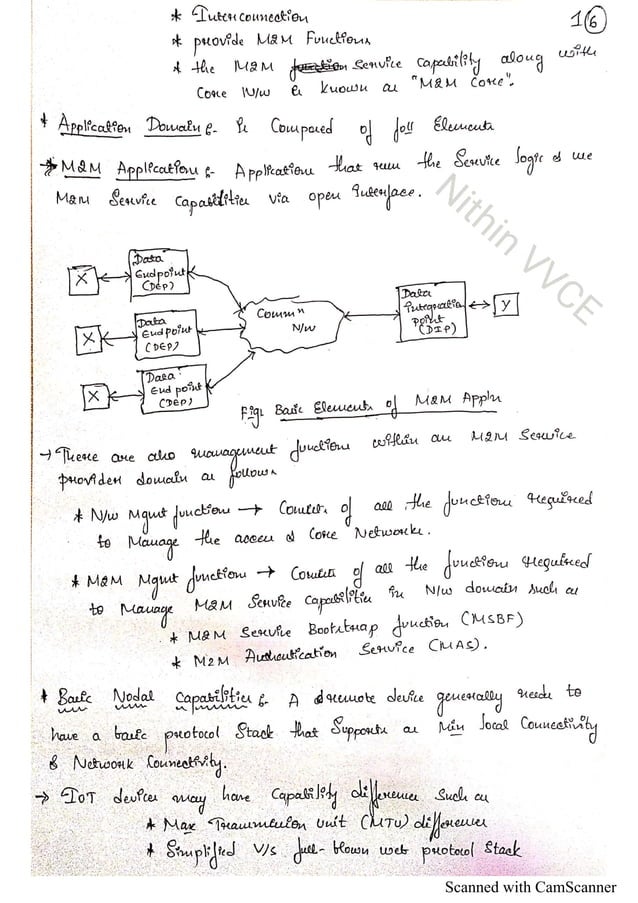 * Interconnection
1(6)
* provide M2M Functions
* the M2M function Service Capability along with
Core N/w is known as "M2M Core".
* Application Domain :- is Composed of foll Elements
* M2M Application :- Application that run the Service logic & use
M2M Service Capabilities via open Interface.
Nithin VVCE
X
Data Endpoint (DEP)
X
Data Endpoint (DEP)
X
Data End point (DEP)
Commn N/w
Data integration point (DIP)
Y
Fig: Basic Elements of M2M Appln
→ There are also management functions within an M2M Service
provider domain as follows
* N/w Mgmt function → Consists of all the functions Required
to Manage the access & Core Networks.
* M2M Mgmt function → Consists of all the functions required
to Manage M2M Service Capabilities in N/w domain such as
* M2M Service Bootstrap function (MSBF)
* M2M Authentication Service (MAS).
* Basic Nodal Capabilities :- A remote device generally needs to
have a basic protocol Stack that Supports as Min local Connectivity
& Network Connectivity.
→ IoT devices may have Capability difference Such as
* Max Transmission Unit (MTU) difference
* Simplified V/s full-blown web protocol Stack
Scanned with CamScanner